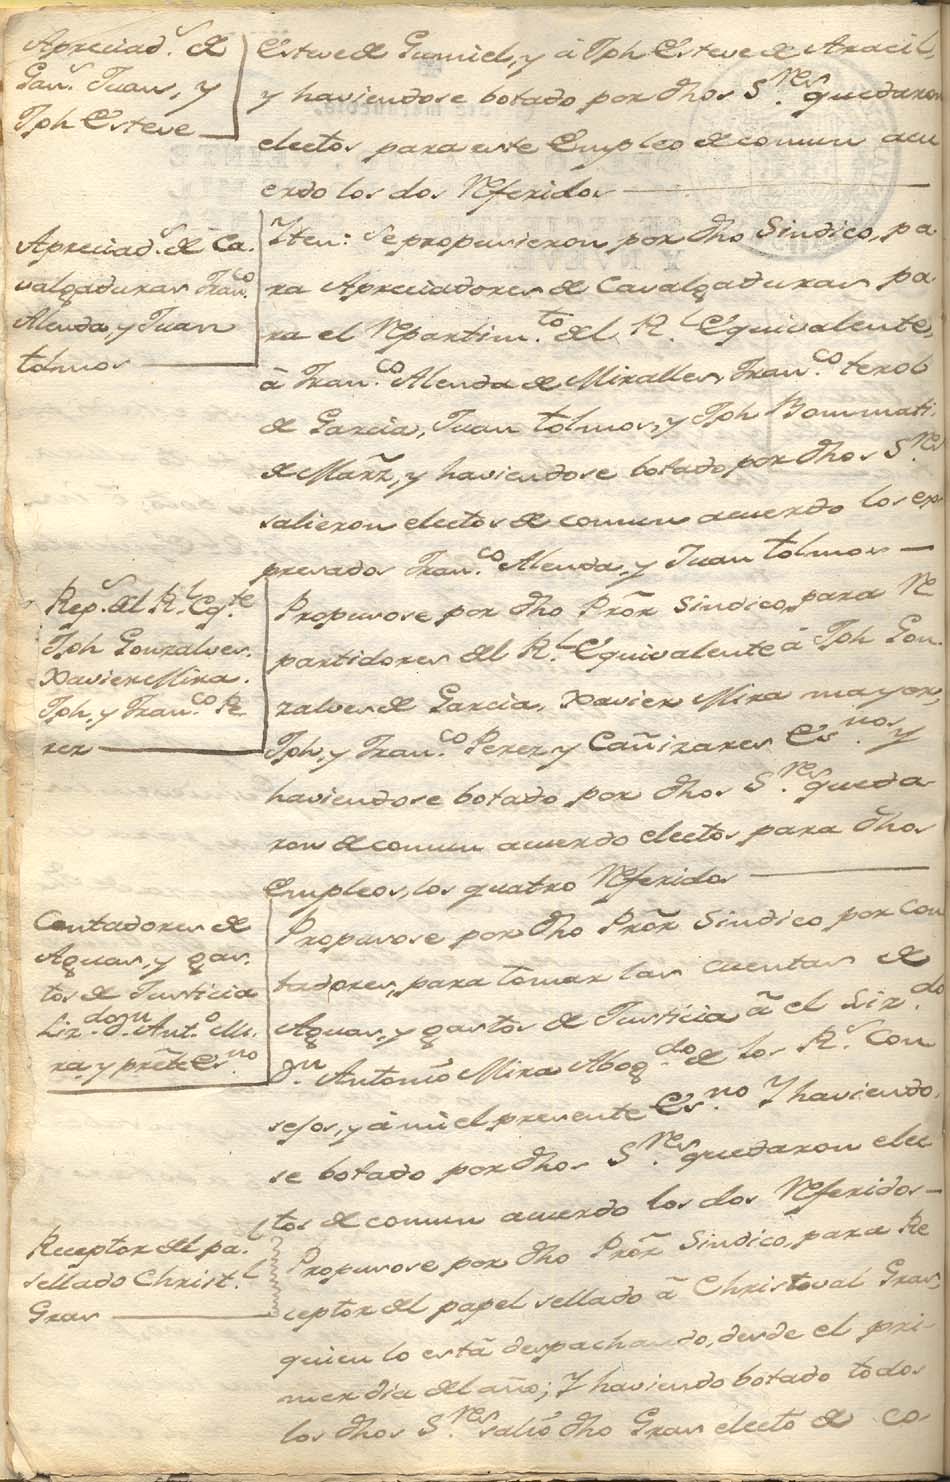 Apreciad.s de
Gan.s Juan, y
Jph Esteve
Esteve de Gumiel, y â Jph Esteve de Aracil,
y haviendose botado por dhos S.res quedaron
electos para este Empleo de comun acu
erdo los dos Referidos
Apreciad.s de Ca.
valgaduras Fran.co
Alenda, y Juan
tolmos
Iten: Se propusieron por dho Sindico, pa
ra Apreciadores de Cavalgaduras pa
ra el Repartim.to del R.l Equivalente,
â Fran.co Alenda de Miralles, Fran.co terol
de Garcia, Juan tolmos, y Jph Bonmati
de Mañz, y haviendose botado, por dhos S.res
salieron electos de comun acuerdo los ex
presados Fran.co Alenda, y Juan tolmos
Rep.s del R.l Eq.te
Jph Gonzalves.
Xavier Mira.
Jph, y Fran.co Pe
rez
Propusose por dho Prõr Sindico, para Re
partidores del R.l Equivalente â Jph Gon
zalves de Garcia, Xavier Mira mayor,
Jph, y Fran.co Perez, y Cañizares Es.nos y
haviendose botado por dhos S.res queda
ron de comun acuerdo electos para dhos
Empleos, los quatro Referidos
Contadores de
Aguas, y gas.
tos de Justicia
Liz.do d.n Ant.o Mi.
ra, y prẽte Es.no
Propusose por dho Prõr Sindico, por Con
tadores, para tomar las cuentas de
Aguas, y gastos de Justicia â el Liz.do
D.n Antonio Mira Abog.do de los R.s Con
sejos, y â mi el presente Es.no Y haviendo.
se botado por dhos S.res quedaron elec
tos de comun acuerdo los dos Referidos
Receptor del pa.l
sellado Christ.l
Gras
Propusose por dho Prõr Sindico, para Re
ceptor del papel sellado â Christoval Gras,
quien lo estâ despachando, desde el pri-
mer dia del año; Y haviendo botado todos
los dhos S.res saliô dho Gras electo de co-